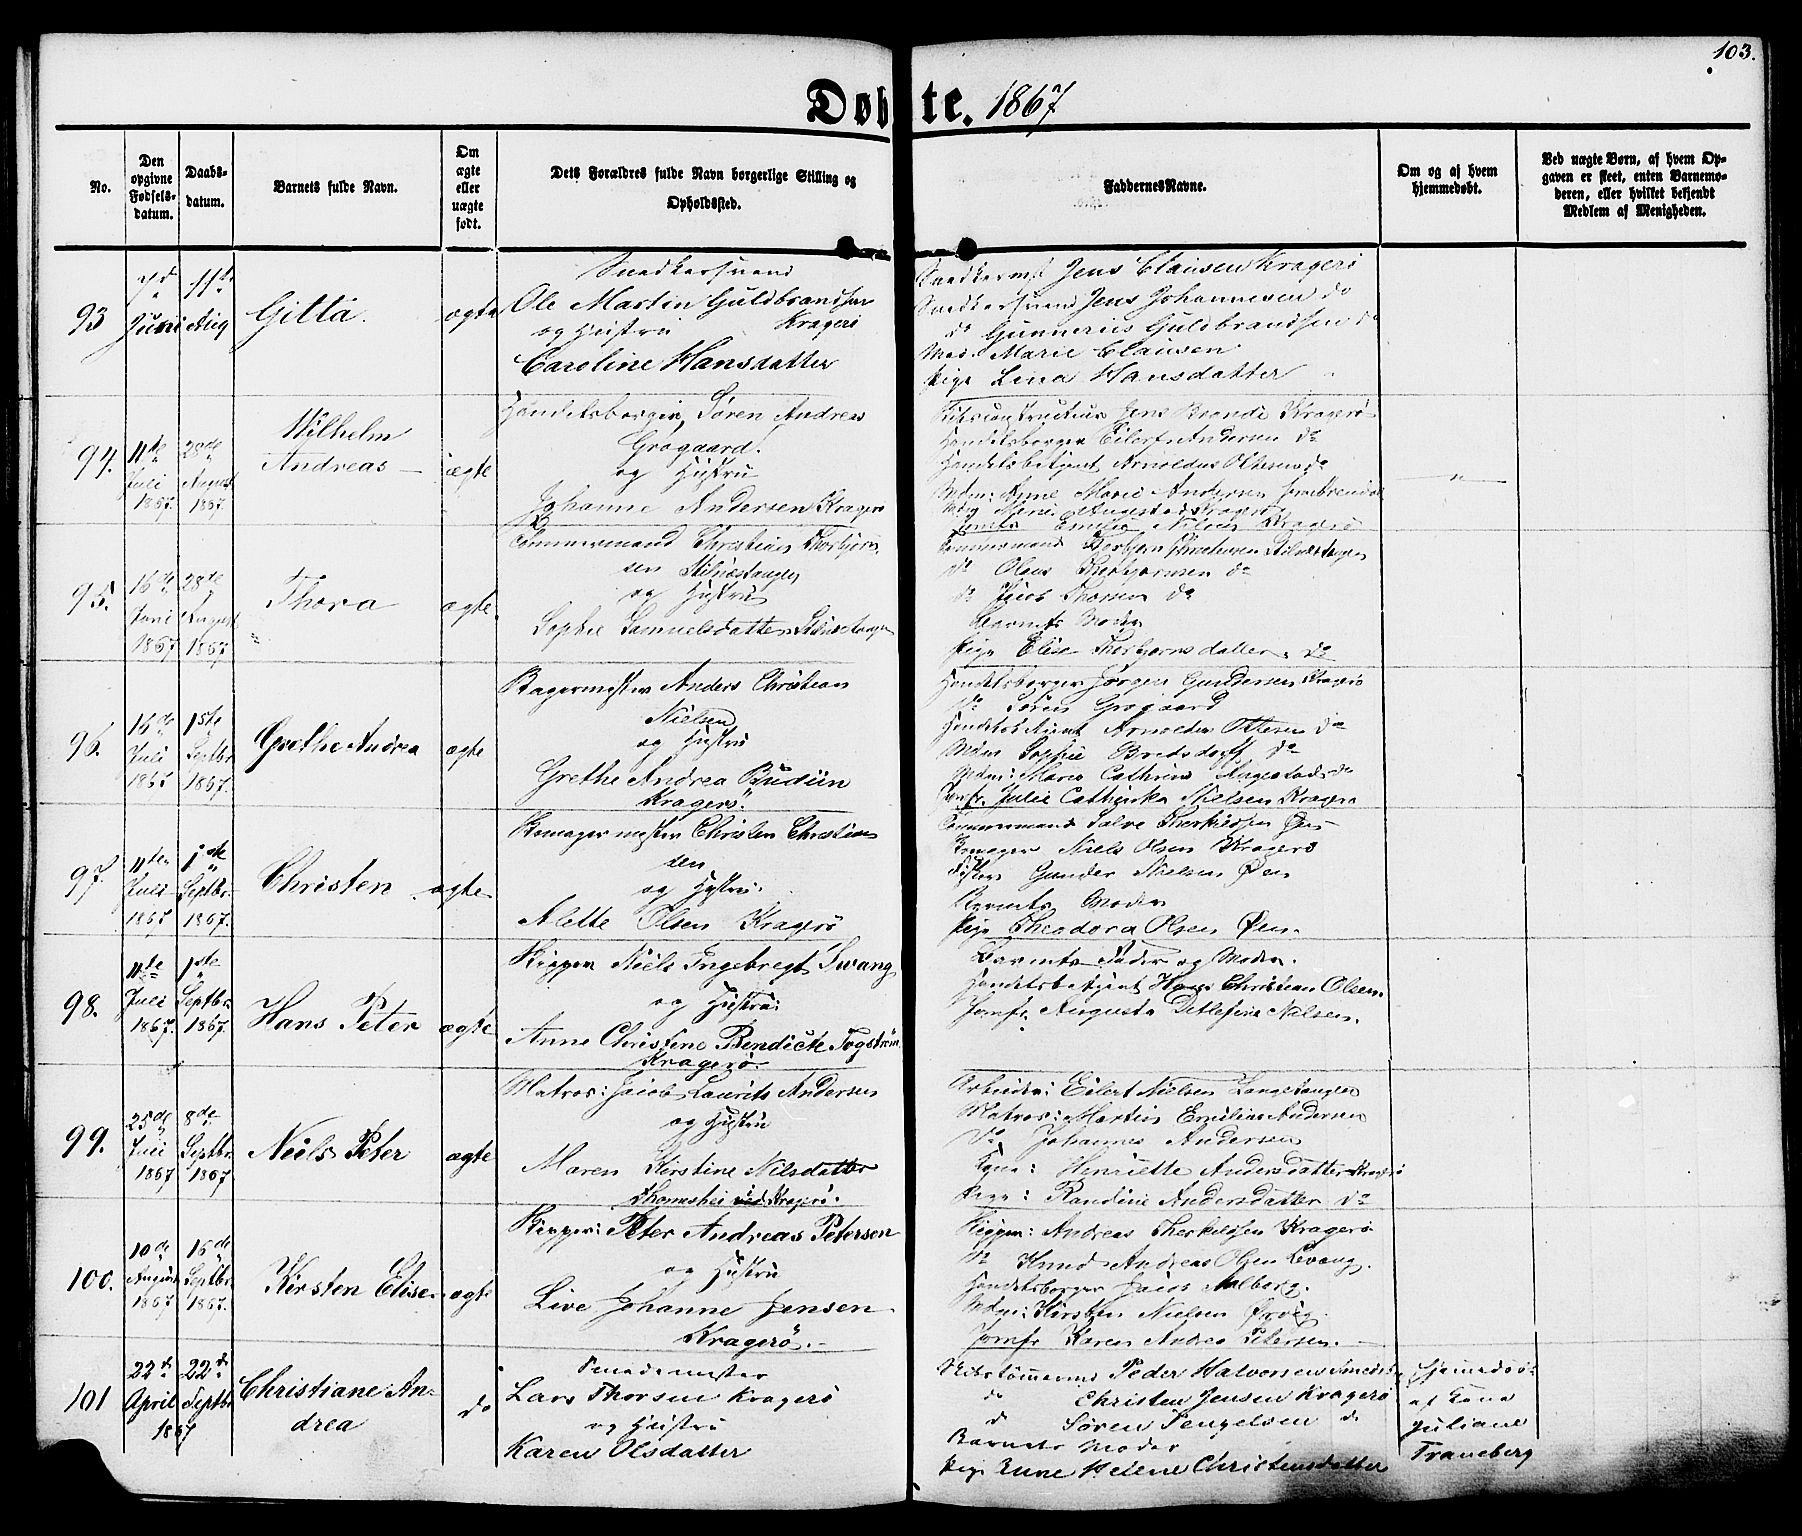 103.
Døbte. 1867
No.
Den opgivne Fødsels-datum.
Daabs-datum.
Barnets fulde Navn.
Om ægte eller uægte født.
Dets Forældres fulde Navn borgerlige Stilling og Opholdssted.
Faddernes Navne.
Om og af hvem hjemmedøbt.
Ved uægte Børn, af hvem Opgaven er skeet, enten Barnemoderen, eller hvilket bekjendt Medlem af Menigheden.
93
Juni
Aug
Gitta.
ægte
Snedkersvend
Ole Martin Guldbrandsen
og Hustru Kragerö
Caroline Hansdatter
Jens Clausen Kragerö
Snedkersvend Jens Johannesen do
do Gunnerius Guldbrandsen do
Mad. Marie Clausen
Pige Lina Hansdatter
94.
11te Juli 1867.
28de August 1867.
Wilhelm
Andreas
ægte
Handelsborger Sören Andreas
Grogaard.
og Hustru
Johanne Andersen Kragerö
Jens Brandt Kragerö
Handelsborger Eilert Andersen do
Handelsbetjent Arnoldus Ottesen do
Mdm: Anne Marie Andersen
Jomfr. Emilie Nilsen Kragerö
95.
16de Juni 1867
28de August 1867.
Thora
ægte.
Tömmermand Christian Thorbjörn-
sen Stilnæstangen
og Hustru
Sophie Samuelsdatter Stilnæstangen
Tömmermand Thorbjörn Stilnæstangen
do Olaus Thorbjörnsen do
do Jacob Thorsen do
Barnets Moder
Pige Elise Thorbjörnsdatter. do
96.
16de Juli 1867
1ste Septbr. 1867.
Grethe Andrea
ægte
Bagermester Anders Christian
Nielsen
og Hustru
Grethe Andrea
Kragerö.
Handelsborger Jörgen Gundersen Kragerö
do Sören Grogaard
Handelsbetjent Arnoldus Ottesen do
Mdm Sophie Bredsdorff do
Mdm: Maren Cathrine Angestad do
Jomfr. Julie Cathinka Nielsen Kragerö
97.
11te Juli 1867
1ste Septbr. 1867.
Christen
ægte
Skomagermester Christen Christian
sen
og Hustru.
Alette Olsen Kragerö
Tömmermand Salve Therkildsen Öen
Skomager Niels Olsen Kragerö
Fisker Gunder Nielsen Öen
Barnets Moder
Pige Theodora Olsen Öen.
98.
11te Juli 1867.
1ste Septbr. 1867.
Hans Peter
ægte
Skipper Niels Ingebregt Swang
og Hustru:
Anne Christene Bendicte Fogström
Kragerö.
Barnets Fader og Moder.
Handelsbetjent Hans Christian Olsen.
Jomfr. Augusta Detlefine Nielsen.
99.
25de Juli 1867
8de Septbr. 1867
Niels Peter
ægte
Matros: Jacob Laurits Andersen
og Hustru
Maren Kirstine Nilsdatter
ved Kragerö.
Arbeider: Eilert Nielsen Langetangen
Matros: Martin Emilius Andersen
do Johannes Andersen
Kone: Henriette Andersdatter Kragerö
Pige: Randine Andersdatter do
100.
10de August 1867
15de Septbr. 1867.
Kirsten Elise
ægte
Skipper: Peter Andreas Petersen
og Hustru
Live Johanne Jensen
Kragerö.
Skipper: Andreas Therkildsen Kragerö
do Knud Andreas Olsen Levang.
Handelsborger Jacob Aalborg.
Mdm: Kirsten Nielsen Örvig
Jomfr Karen Andrea Petersen.
101
22de April 1867
22de Septbr
Christiane An-
drea
do
Smedemester
Lars Thorsen Kragerö
og Hustru
Karen Olsdatter
Skibstömmermd Peder Halvorsen
do Christen Jensen Kragerö
do Sören Tengelsen do
Barnets Moder
Pige Anne Helene Christensdatter
Hjemmedöbt
af Kone
Juliane
Traneberg